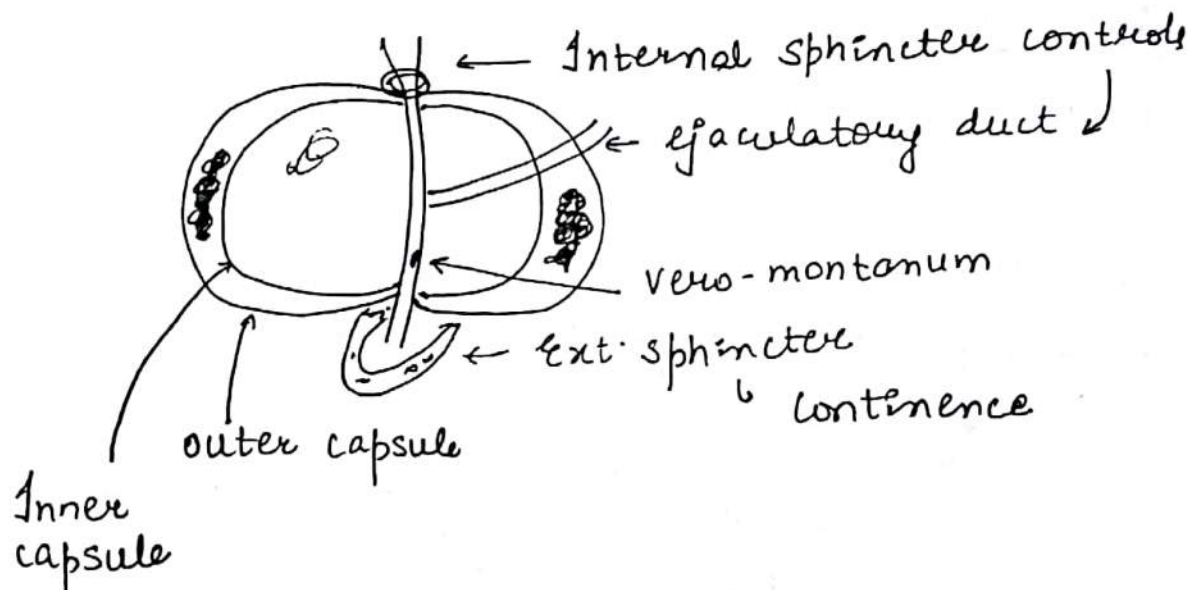 Internal sphincter controls
ejaculatory duct
vero-montanum
Ext. sphincter
continence
outer capsule
Inner
capsule